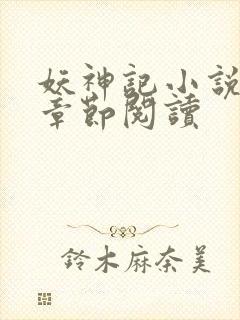 妖神記小說
章節閱讀
鈴木麻奈美